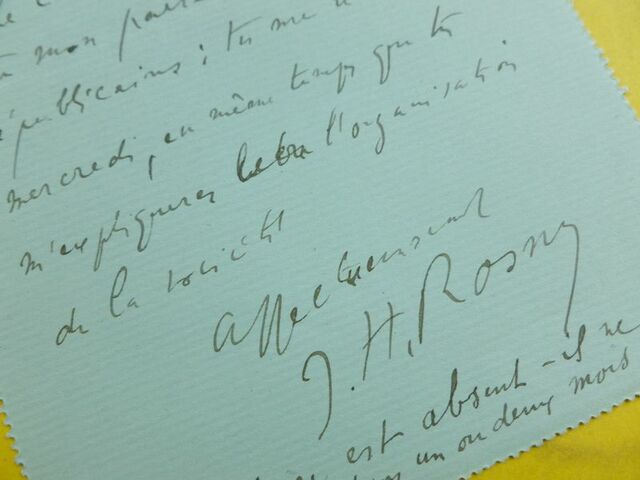 mon
républicains ; tu me
mercredi, en même temps que tu
m'expliqueras l'organisation
de la société
affectueusement
J. H. Rosny
est absent - il ne
un ou deux mois